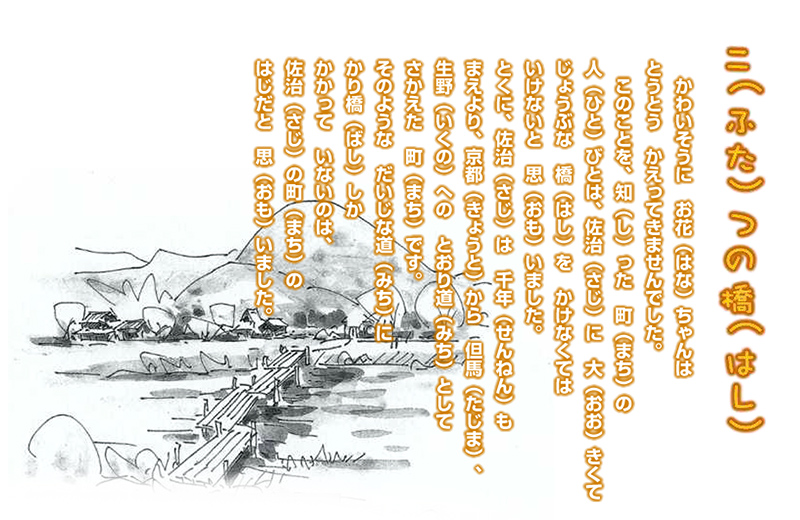 二(ふた)つの橋(はし)
かわいそうに　お花(はな)ちゃんは
とうとう　かえってきませんでした。
このことを、知(し)った　町(まち)の
人(ひと)びとは、佐治(さじ)に　大(おお)きくて
じょうぶな　橋(はし)を　かけなくては
いけないと　思(おも)いました。
とくに、佐治(さじ)は　千年(せんねん)も
まえより、京都(きょうと)から　但馬(たじま)、
生野(いくの)への　とおり道(みち)として
さかえた　町(まち)です。
そのような　だいじな道(みち)に
かり橋(ばし)しか
かかって　いないのは、
佐治(さじ)の町(まち)の
はじだと　思(おも)いました。